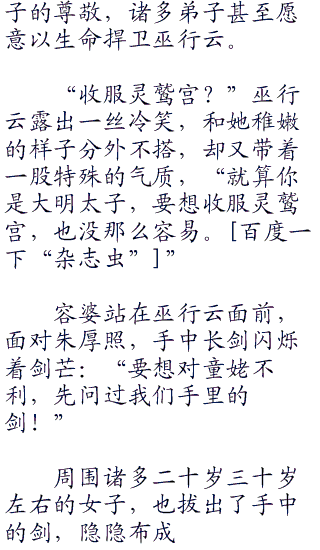 子的尊敬，诸多弟子甚至愿
意以生命捍卫巫行云。
“收服灵鹫宫？”巫行
云露出一丝冷笑，和她稚嫩
的样子分外不搭，却又带着
一股特殊的气质，“就算你
是大明太子，要想收服灵鹫
宫，也没那么容易。[百度一
下“杂志虫”]”
容婆站在巫行云面前，
面对朱厚照，手中长剑闪烁
着剑芒：“要想对童姥不
利，先问过我们手里的
剑！”
周围诸多二十岁三十岁
左右的女子，也拔出了手中
的剑，隐隐布成